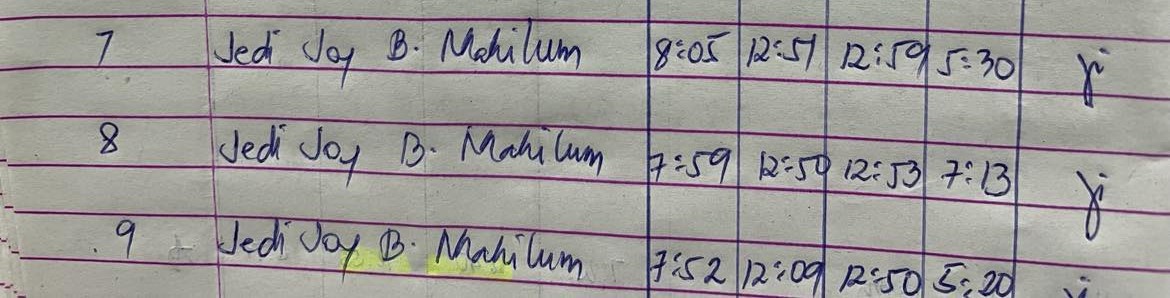 7 Jedi Joy B. Mahilum 8:05 12:51 12:59 5:30
8 Jedi Joy B. Mahilum 7:59 12:50 12:53 7:13
9 Jedi Joy B. Mahilum 7:52 12:09 12:50 5:20